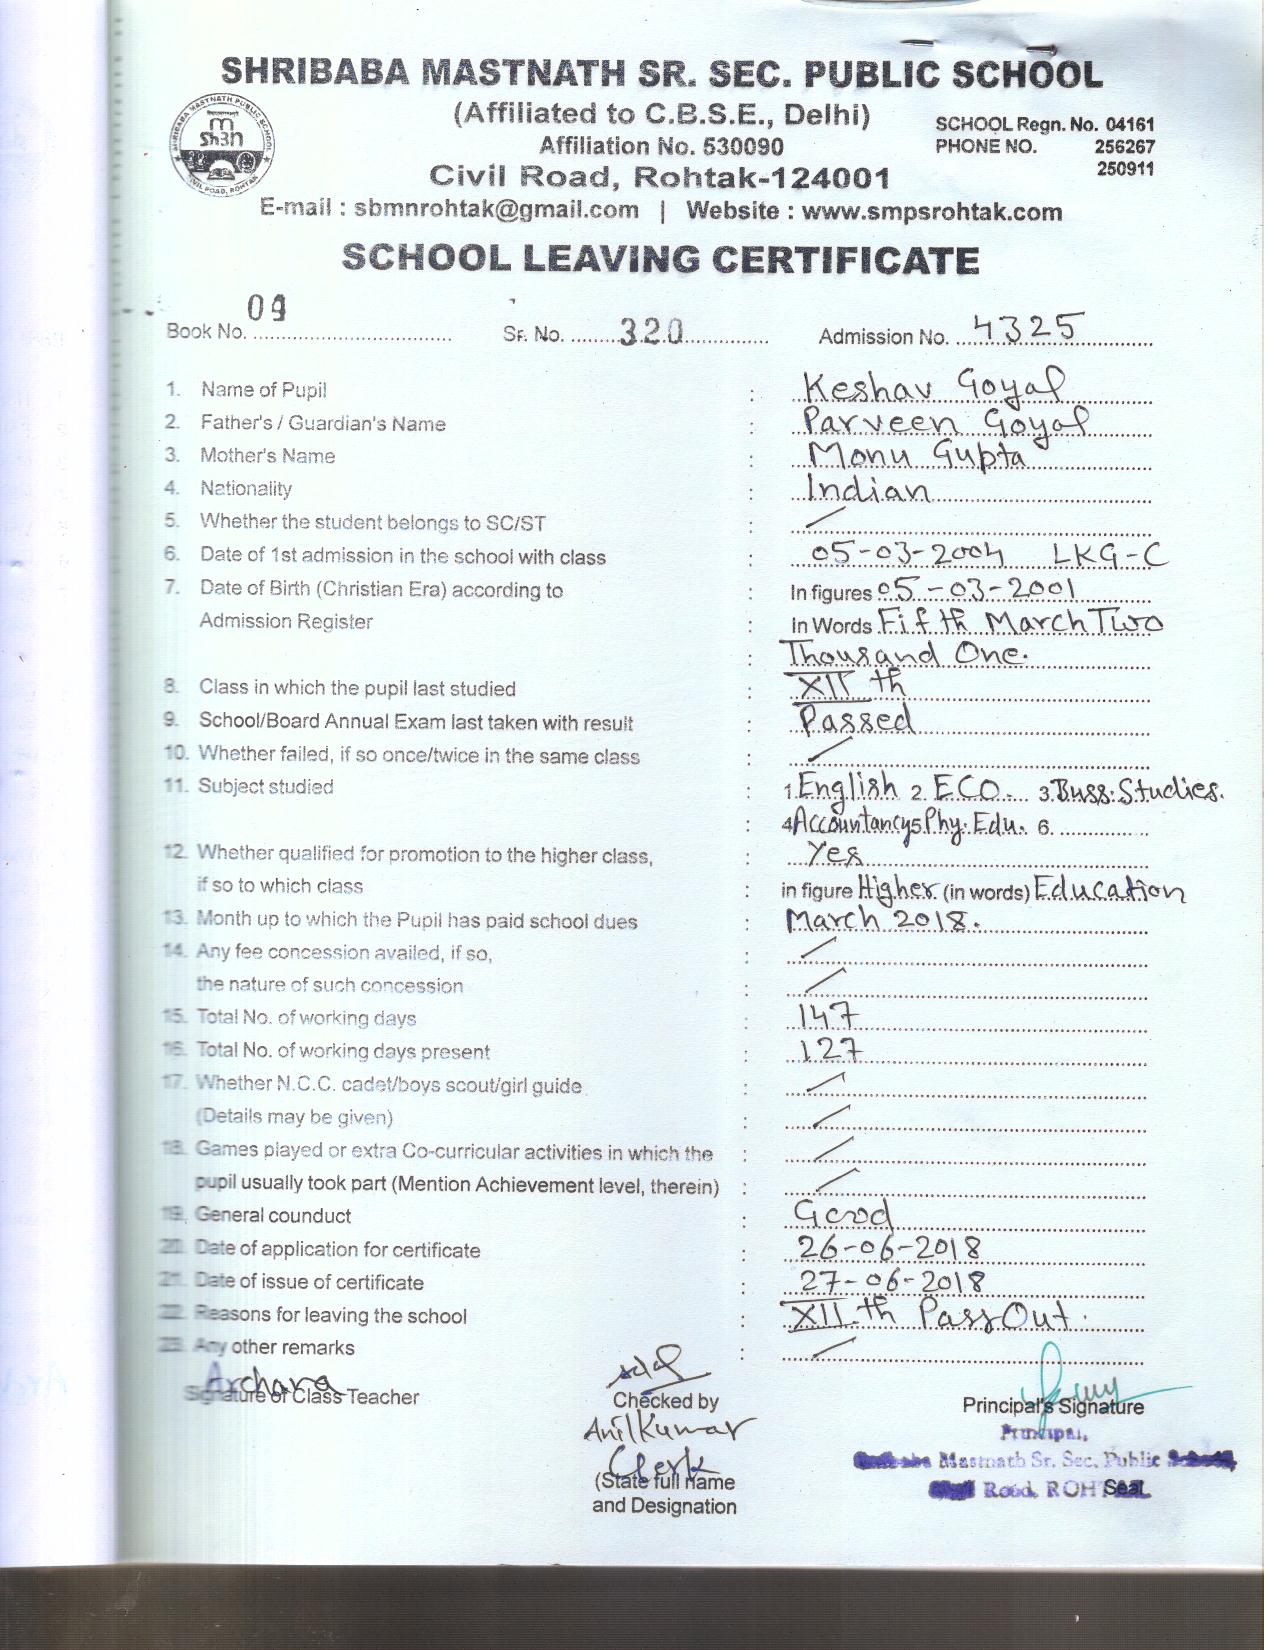 SHRIBABA MASTNATH SR. SEC. PUBLIC SCHOOL
(Affiliated to C.B.S.E., Delhi)
Affiliation No. 530090
SCHOOL Regn. No. 04161
PHONE NO. 256267
250911
Civil Road, Rohtak-124001
E-mail : sbmnrohtak@gmail.com | Website : www.smpsrohtak.com
SCHOOL LEAVING CERTIFICATE
Book No. 09 Sr. No. 320 Admission No. 4325
1. Name of Pupil : Keshav Goyal
2. Father's / Guardian's Name : Parveen Goyal
3. Mother's Name : Monu Gupta
4. Nationality : Indian
5. Whether the student belongs to SC/ST : /
6. Date of 1st admission in the school with class : 05-03-2004 LKG-C
7. Date of Birth (Christian Era) according to : In figures 05-03-2001
Admission Register : In Words Fifth March Two
: Thousand One.
8. Class in which the pupil last studied : XII th
9. School/Board Annual Exam last taken with result : Passed
10. Whether failed, if so once/twice in the same class : /
11. Subject studied : 1. English 2. ECO. 3. Buss. Studies.
: 4 Accountancy 5 Phy. Edu. 6.
12. Whether qualified for promotion to the higher class, : Yes
if so to which class : in figure Higher (in words) Education
13. Month up to which the Pupil has paid school dues : March 2018.
14. Any fee concession availed, if so, : /
the nature of such concession : /
15. Total No. of working days : 147
16. Total No. of working days present : 127
17. Whether N.C.C. cadet/boys scout/girl guide : /
(Details may be given) : /
18. Games played or extra Co-curricular activities in which the : /
pupil usually took part (Mention Achievement level, therein) : /
19. General counduct : Good
20. Date of application for certificate : 26-06-2018
21. Date of issue of certificate : 27-06-2018
22. Reasons for leaving the school : XII th Pass Out.
23. Any other remarks : /
Archana
Signature of Class Teacher
Checked by
Anil Kumar
Clerk
(State full name
and Designation
Principal's Signature
Principal,
Mastnath Sr. Sec. Public
Road, ROHTAK
Seal